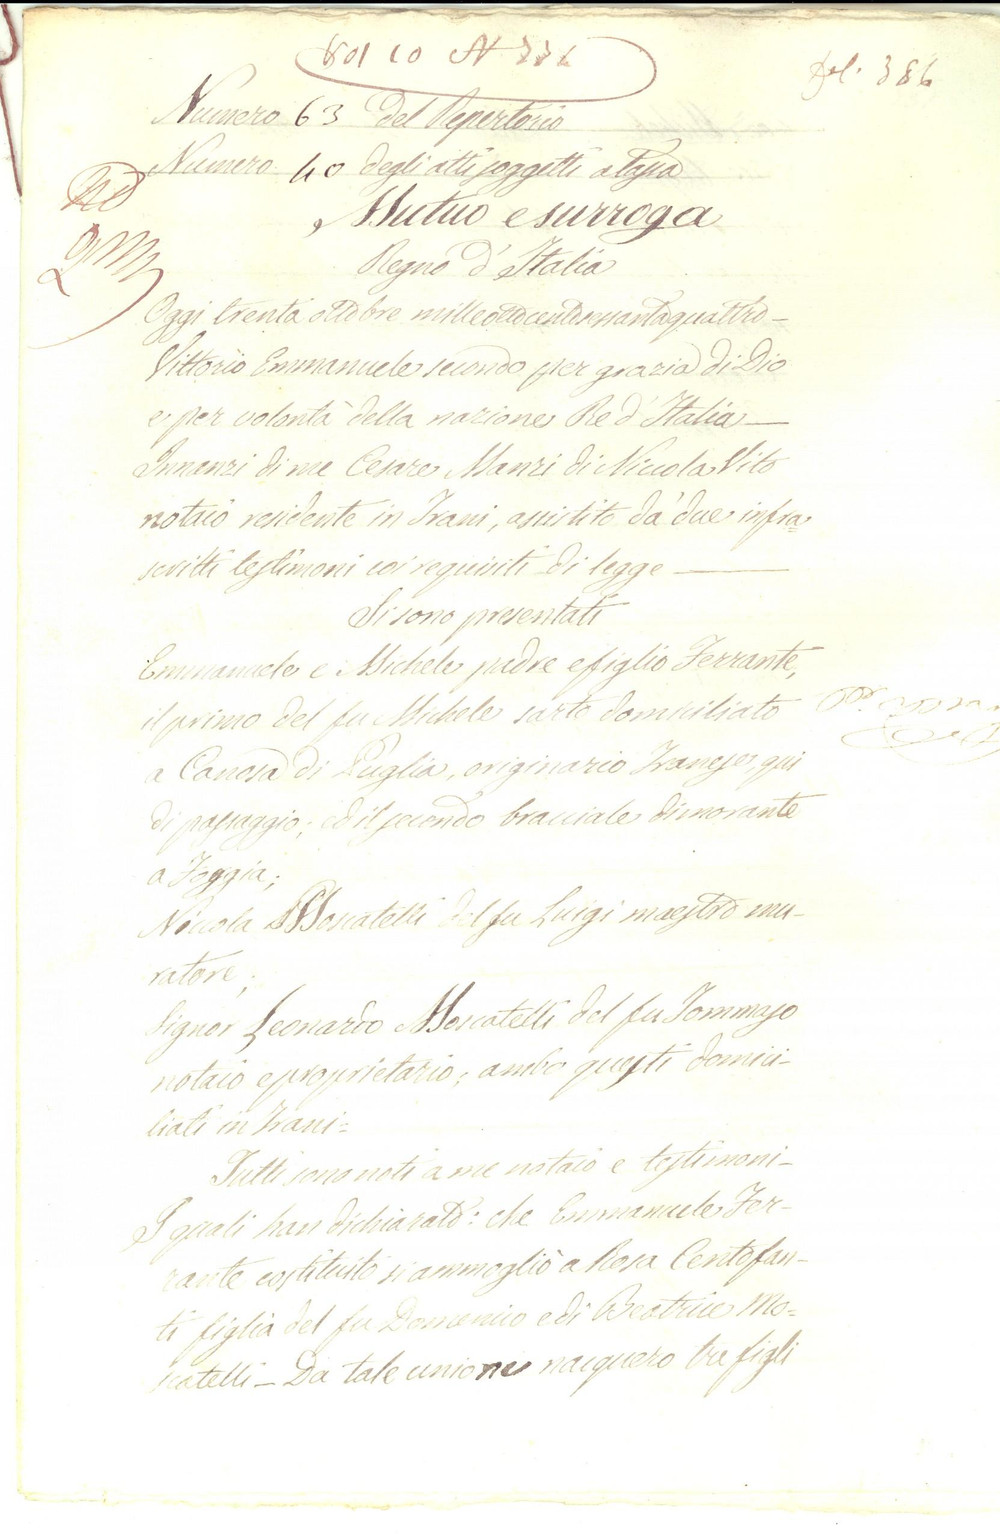 Vol 10 N 336
fol. 386
Numero 63 del Repertorio
Numero 40 degli atti soggetti a tassa
Mutuo e surroga
Regno d'Italia
Oggi trenta ottobre milleottocentosessantaquattro –
Vittorio Emmanuele secondo per grazia di Dio
e per volontà della nazione Re d'Italia —
Innanzi di me Cesare Manzi di Niccola Vito
notaio residente in Trani, assistito da' due infra=
scritti testimoni coi requisiti di legge —
Si sono presentati
Emmanuele e Michele padre e figlio Ferrante,
il primo del fu Michele sarto domiciliato
a Canosa di Puglia, originario Tranese, qui
di passaggio; ed il secondo bracciale dimorante
a Foggia;
Niccola Moscatelli del fu Luigi maestro mu–
ratore;
Signor Leonardo Moscatelli del fu Tommaso
notaio e proprietario; ambo questi domici–
liati in Trani=
Tutti sono noti a me notaio e testimoni–
I quali han dichiarato: che Emmanuele Fer–
rante costituito si ammogliò a Rosa Centofan–
ti figlia del fu Domenico e di Beatrice Mo=
scatelli – Da tale unione nacquero tra figli